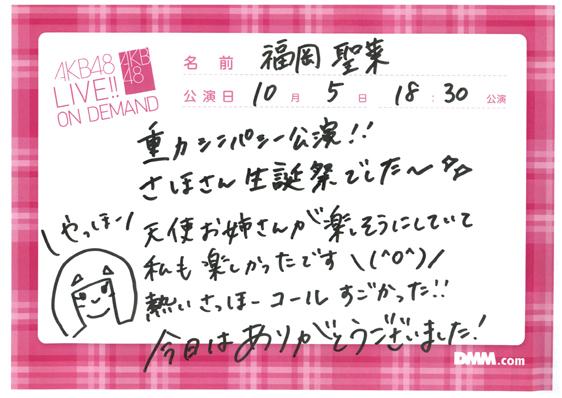 AKB48
LIVE!!
ON DEMAND
AKB
48
名前 福岡 聖菜
公演日 10月 5日 18:30 公演
重力シンパシー公演!!
さほさん生誕祭でした〜
\やっほー/
天使お姉さんが楽しそうにしていて
私も楽しかったです\(^o^)/
熱いさっほーコールすごかった!!
今日はありがとうございました!
DMM.com